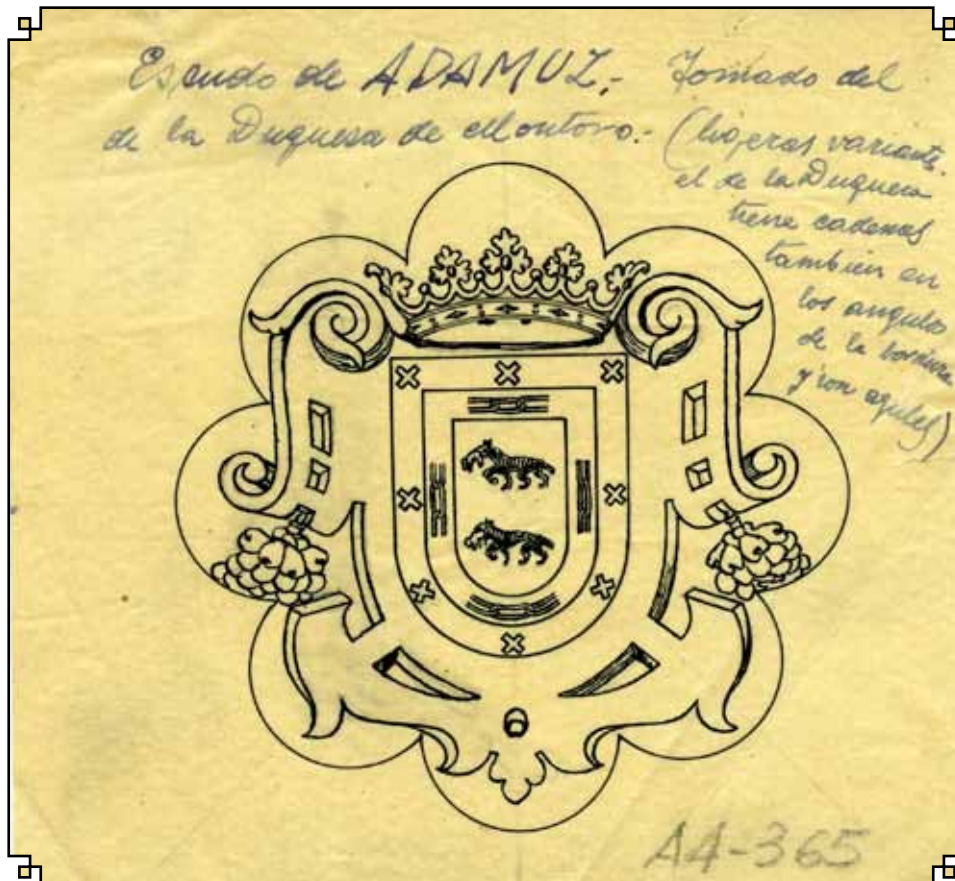 Escudo de ADAMUZ.- Tomado del
de la Duquesa de Montoro.- (ligeras variante.
el de la Duquesa
tiene cadenas
también en
los angulos
de la bordura
y son azules)
A4-365